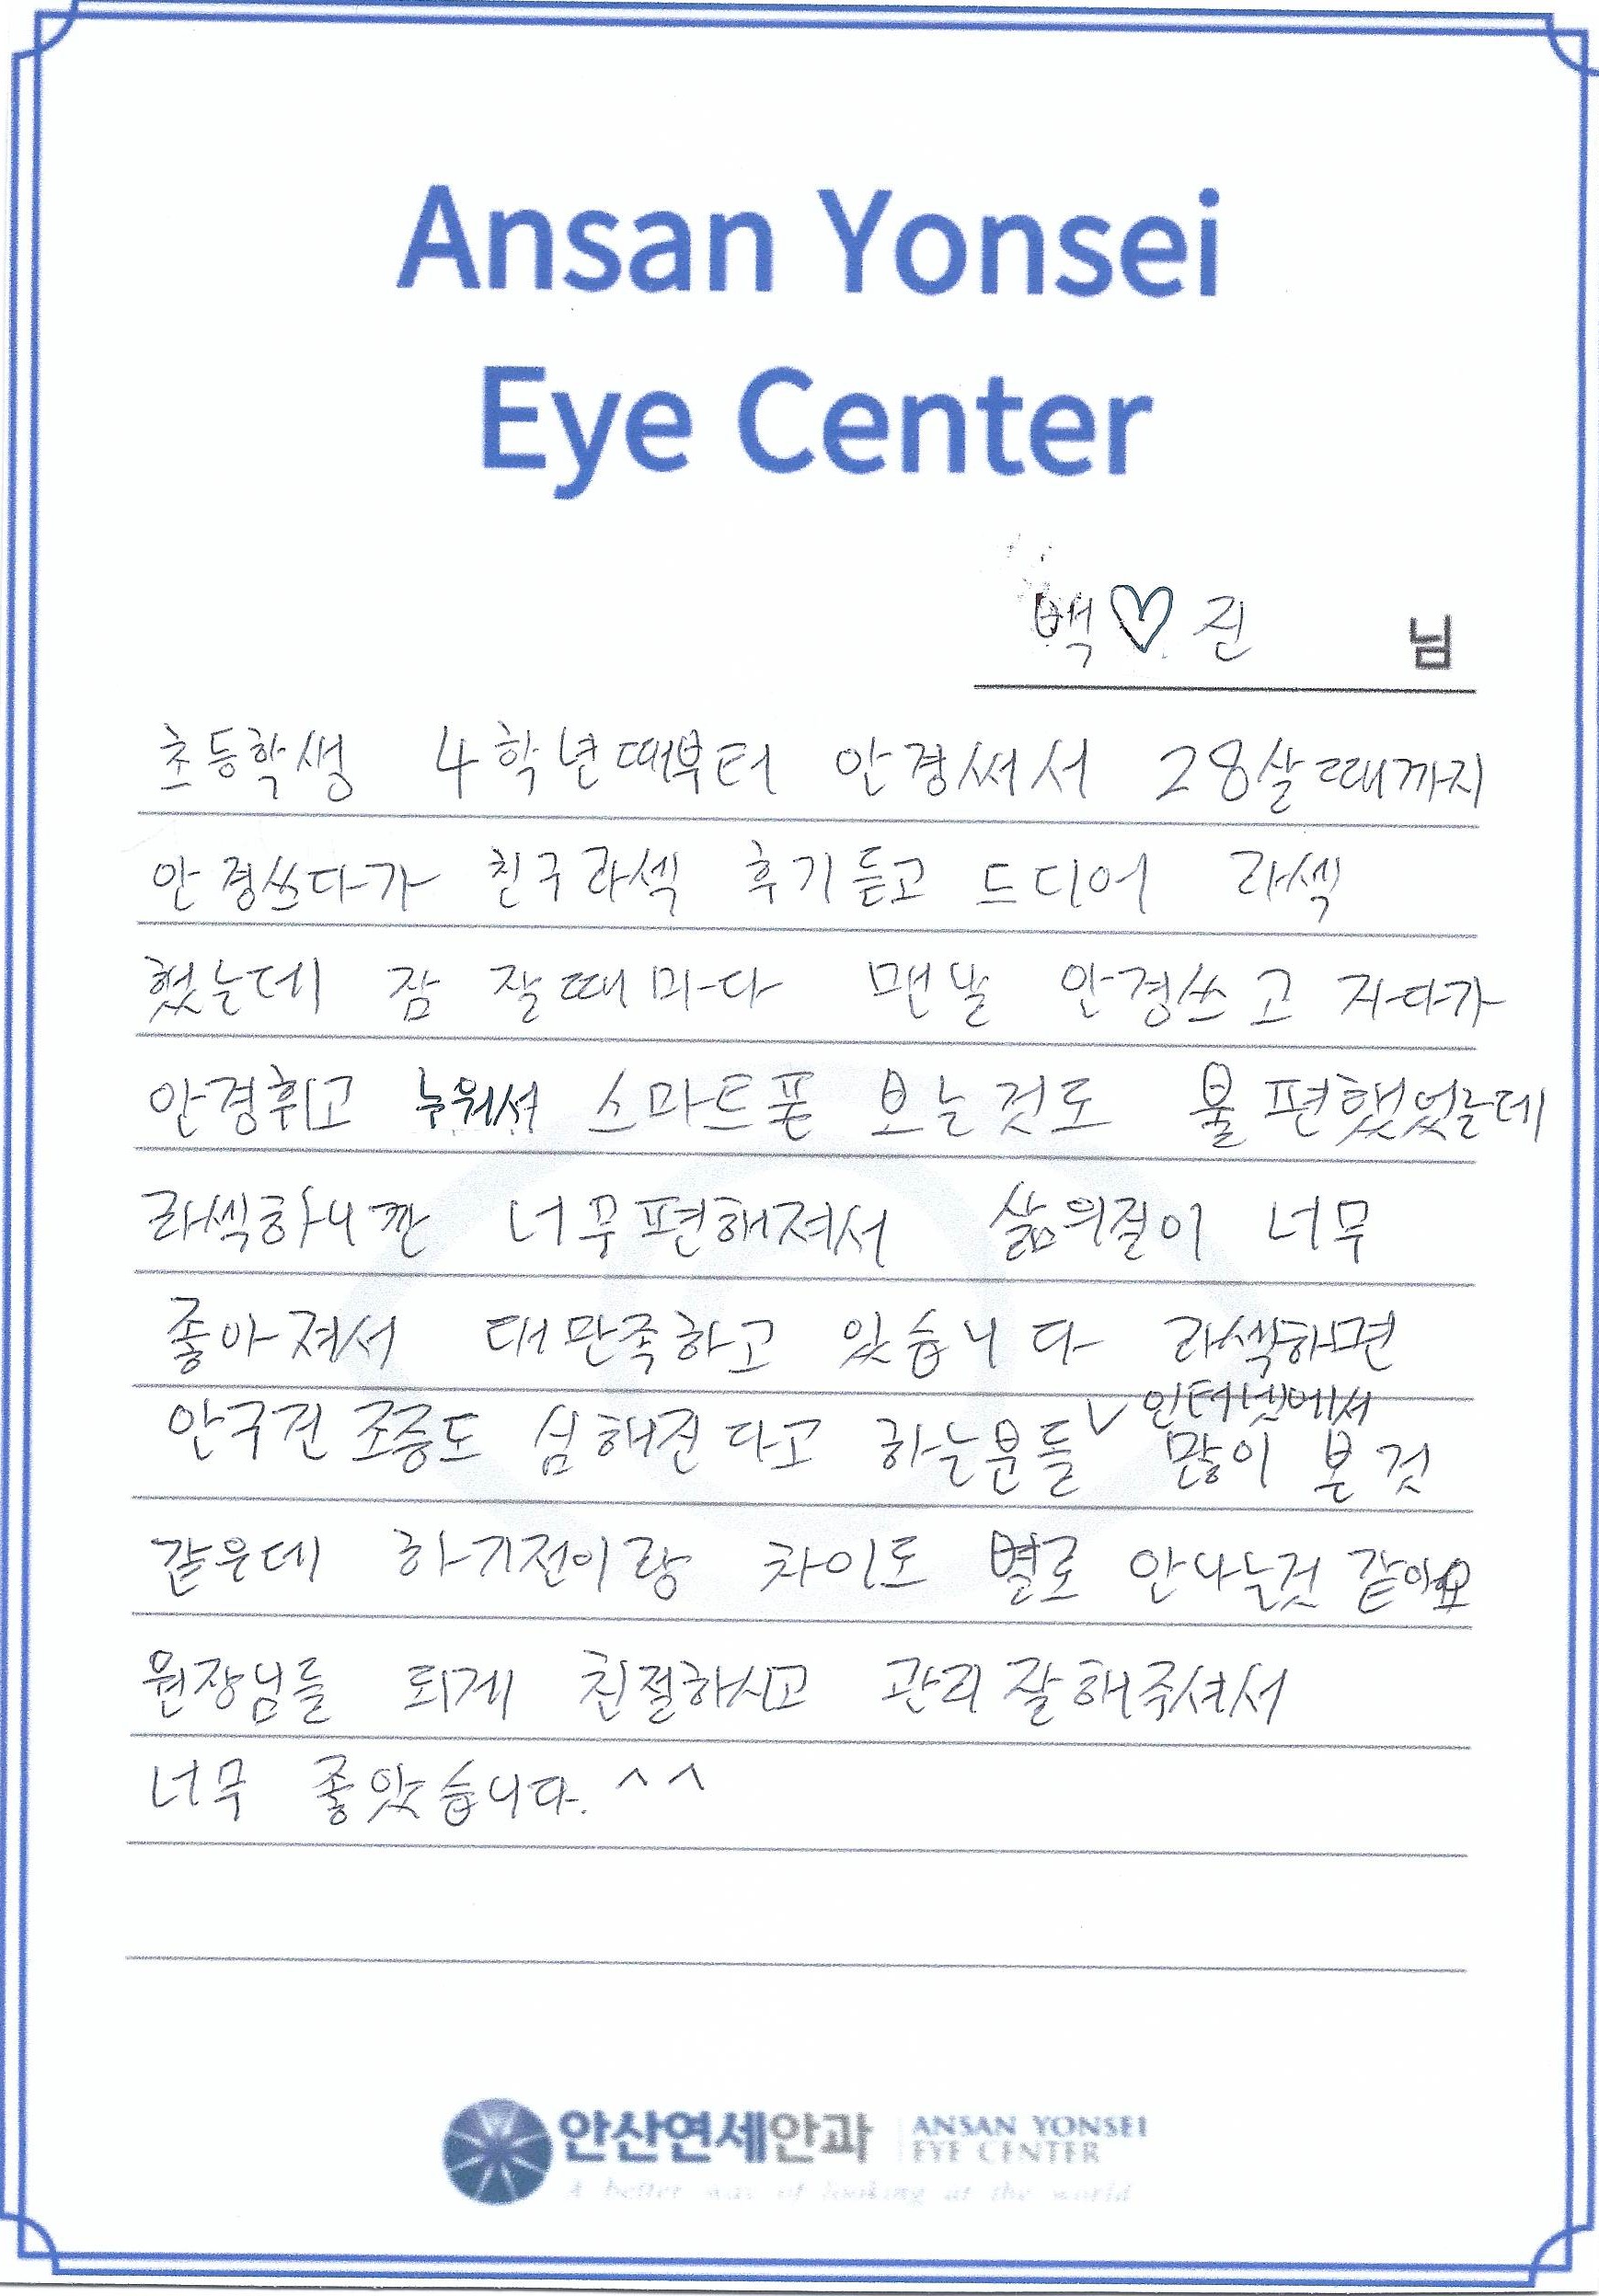 Ansan Yonsei
Eye Center
백♡진 님
초등학생 4학년때부터 안경써서 28살때까지
안경쓰다가 친구라섹 후기듣고 드디어 라섹
했는데 잠 잘때마다 맨날 안경쓰고 자다가
안경휘고 누워서 스마트폰 보는것도 불편했었는데
라섹하니깐 너무편해져서 삶의질이 너무
좋아져서 대만족하고 있습니다 라섹하면
안구건조증도 심해진다고 하는분들 ∨ 인터넷에서 많이 본것
같은데 하기전이랑 차이도 별로 안나는것 같아요
원장님들 되게 친절하시고 관리잘해주셔서
너무 좋았습니다. ^^
안산연세안과 ANSAN YONSEI
EYE CENTER
A better way of looking at the world